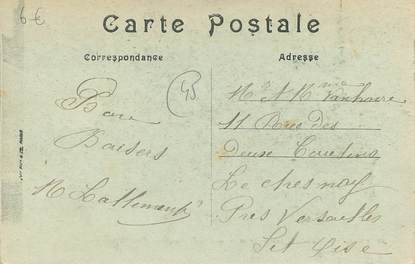 6€
Carte Postale
Correspondance
Adresse
Bons
Baisers
Mr & Mme Vanhove
11 Rue des
Deux Cousins
Le Chesnay
Près Versailles
Set Oise